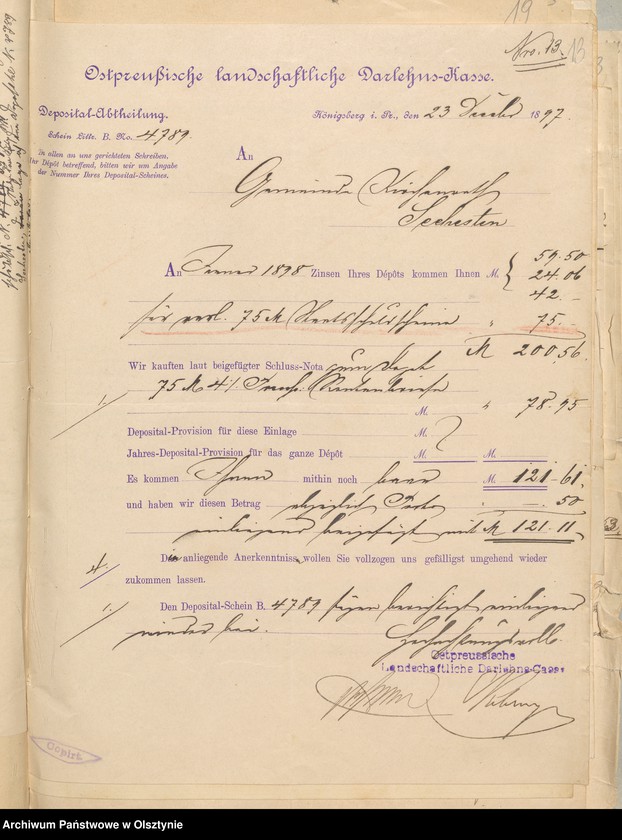 19
Nro. 13.
13
Ostpreußische landschaftliche Darlehns-Kasse.
Deposital-Abtheilung.
Königsberg i. Pr., den 23 Decbr 1897.
Schein Littr. B. No. 4789.
In allen an uns gerichteten Schreiben,
Ihr Dépôt betreffend, bitten wir um Angabe
der Nummer Ihres Deposital-Scheines.
An
Gemeinde Kirchenrath
Seehesten
An Januar 1898 Zinsen Ihres Dépôts kommen Ihnen M. 59.50
24.06
42.—
für verl. 75 M " 75.—
M 200,56.
Wir kauften laut beigefügter Schluss-Nota zum Dépôt
75 M 4% Rentenbriefe
M. " 78.95
Deposital-Provision für diese Einlage M.
Jahres-Deposital-Provision für das ganze Dépôt M. M.
Es kommen Ihnen mithin noch baar M. 121.61.
und haben wir diesen Betrag abzüglich Porto —.50
einliegend beigefügt mit M 121.11
Die anliegende Anerkenntniss wollen Sie vollzogen uns gefälligst umgehend wieder
zukommen lassen.
Den Deposital-Schein B. 4789 fügen berichtigt einliegend
wieder bei.
Hochachtungsvoll
Ostpreussische
Landschaftliche Darlehns-Casse
Copirt
Archiwum Państwowe w Olsztynie